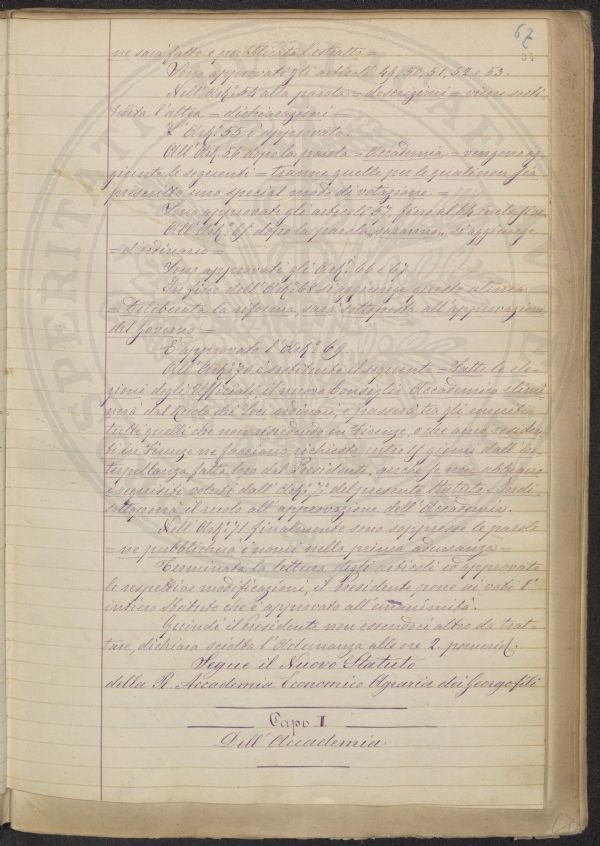 67
34
ne sarà fatto e pubblicato l'estratto =
Sono approvati gli articoli 49, 50, 51, 52 e 53.
Nell'Art.° 54 alla parola = descrizioni = viene sosti
tuita l'altra = dichiarazioni =
L'Art.° 55 è approvato.
All'Art. 56 dopo la parola = Accademia = vengono ag
giunte le seguenti = tranne quelle per le quali non sia
prescritto uno special modo di votazione =
Sono approvati gli articoli 57 fino al 64 inclusive.
All'Art.° 65 dopo la parola „ saranno „ si aggiunge
= d'ordinario =
Sono approvati gli Art.i 66 e 67
In fine dell'Art.° 68 si aggiunge questo alinea
= Deliberata la riforma, sarà sottoposta all'approvazione
del Governo =
È approvato l'Art.° 69.
All'Art.° 70 è sostituito il seguente = Fatte le ele-
zioni degli Ufficiali il nuovo Consiglio Accademico elimi
nerà dal Ruolo dei Soci ordinari, e passerà tra gli emeriti
tutti quelli che non risiedendo in Firenze, o che anco residen
ti in Firenze ne facciano richiesta entro 15 giorni dall'in
terpellanza fatta loro dal Presidente, anche se non abbiano
i requisiti voluti dall'Art.° 7° del presente Statuto. Indi
sottoporrà il ruolo all'approvazione dell'Accademia.
Nell'Art.° 71 finalmente sono soppresse le parole
= ne pubblicherà i nomi nella prima adunanza =
Terminata la lettura degli articoli ed approvate
le respettive modificazioni, il Presidente pone ai voti l'
intiero Statuto che è approvato all'unanimità.
Quindi il Presidente non essendovi altro da trat-
tare, dichiara sciolta l'Adunanza alle ore 2. pomerid.
Segue il Nuovo Statuto
della R. Accademia Economico Agraria dei Georgofili
Capo I
Dell'Accademia